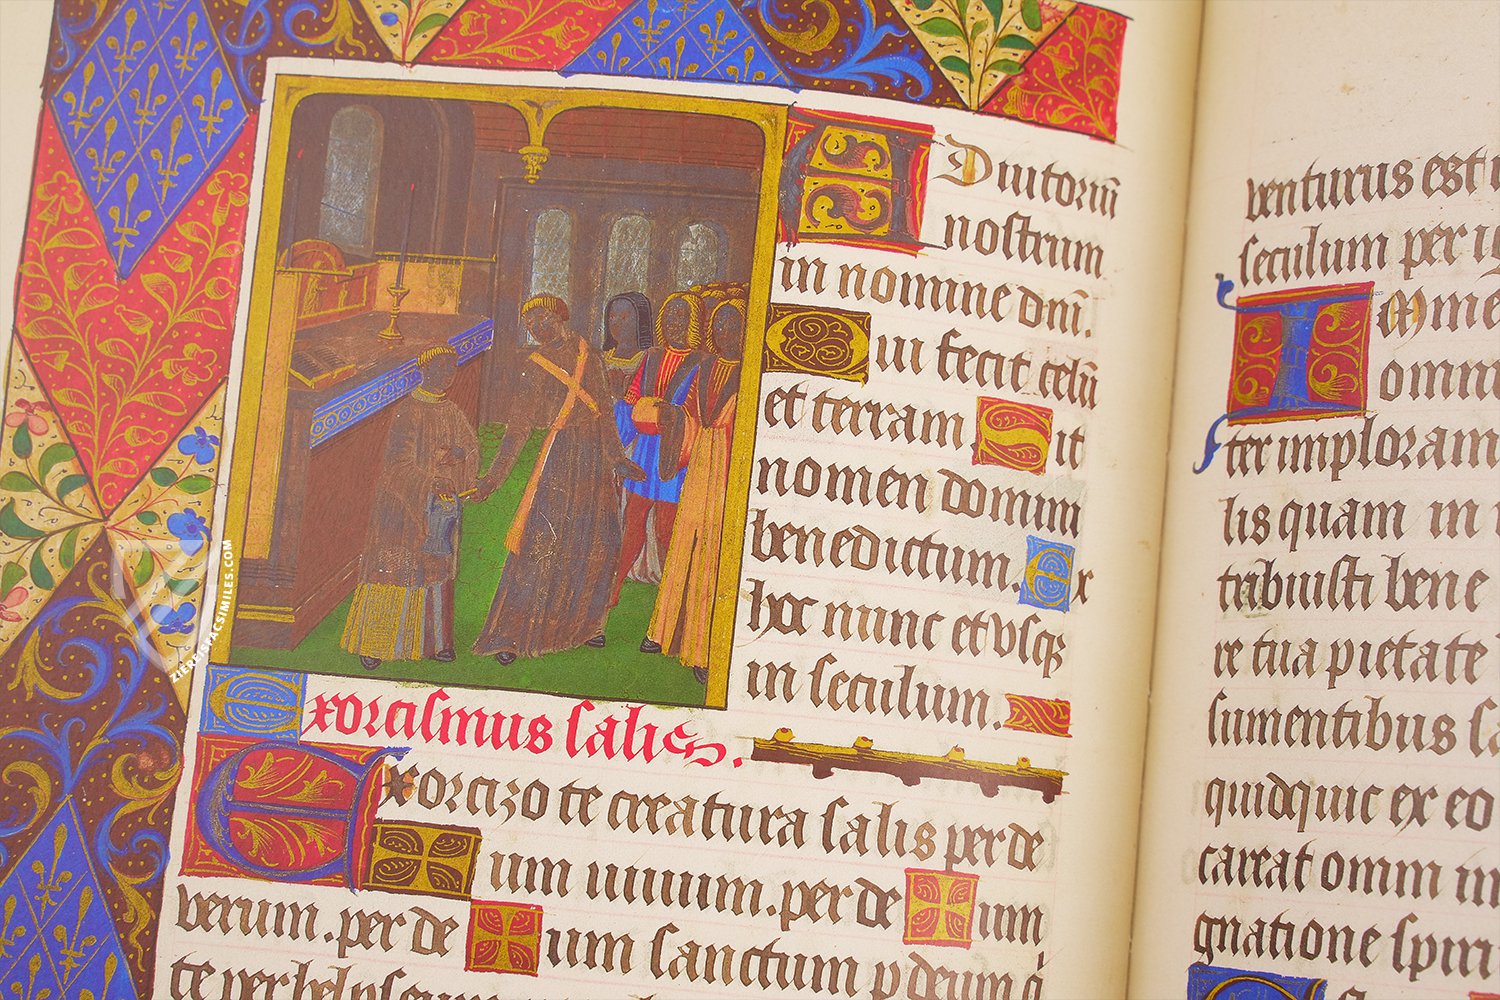 Adiutoriũ
nostrum
in nomine dnĩ.
Qui fecit celũ
et terram Sit
nomen domini
benedictum. Ex
hoc nunc et vsqꝫ
in seculum.
Exorcismus salis.
Exorcizo te creatura salis per de
um uiuum. per de um
verum. per de um sanctum p deum q
te per
venturus est
seculum per ig
Imme
omni
ter imploram
lis quam in
tribuisti bene
re tua pietate
sumentibus sa
quidquic ex eo
careat omni in
gnatione spiri
ZIEREISFACSIMILES.COM